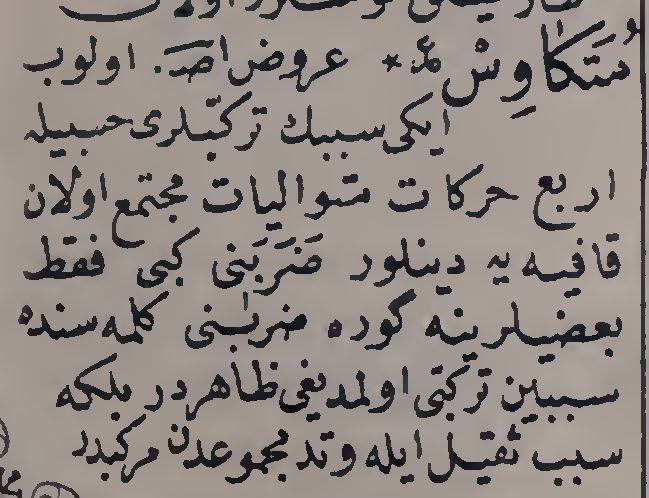 مُتَكَاوِسْ عر * عروض اصـ. اولوب
ايكى سببك تركّبلرى حسبيله
اربع حركات متواليات مجتمع اولان
قافيه يه دينلور ضَرَبَنى كبى فقط
بعضيلرينه كوره ضربنى كلمه سنده
سببين تركّبى اولمديغى ظاهردر بلكه
سبب ثقيل ايله وتد مجموعدن مركبدر